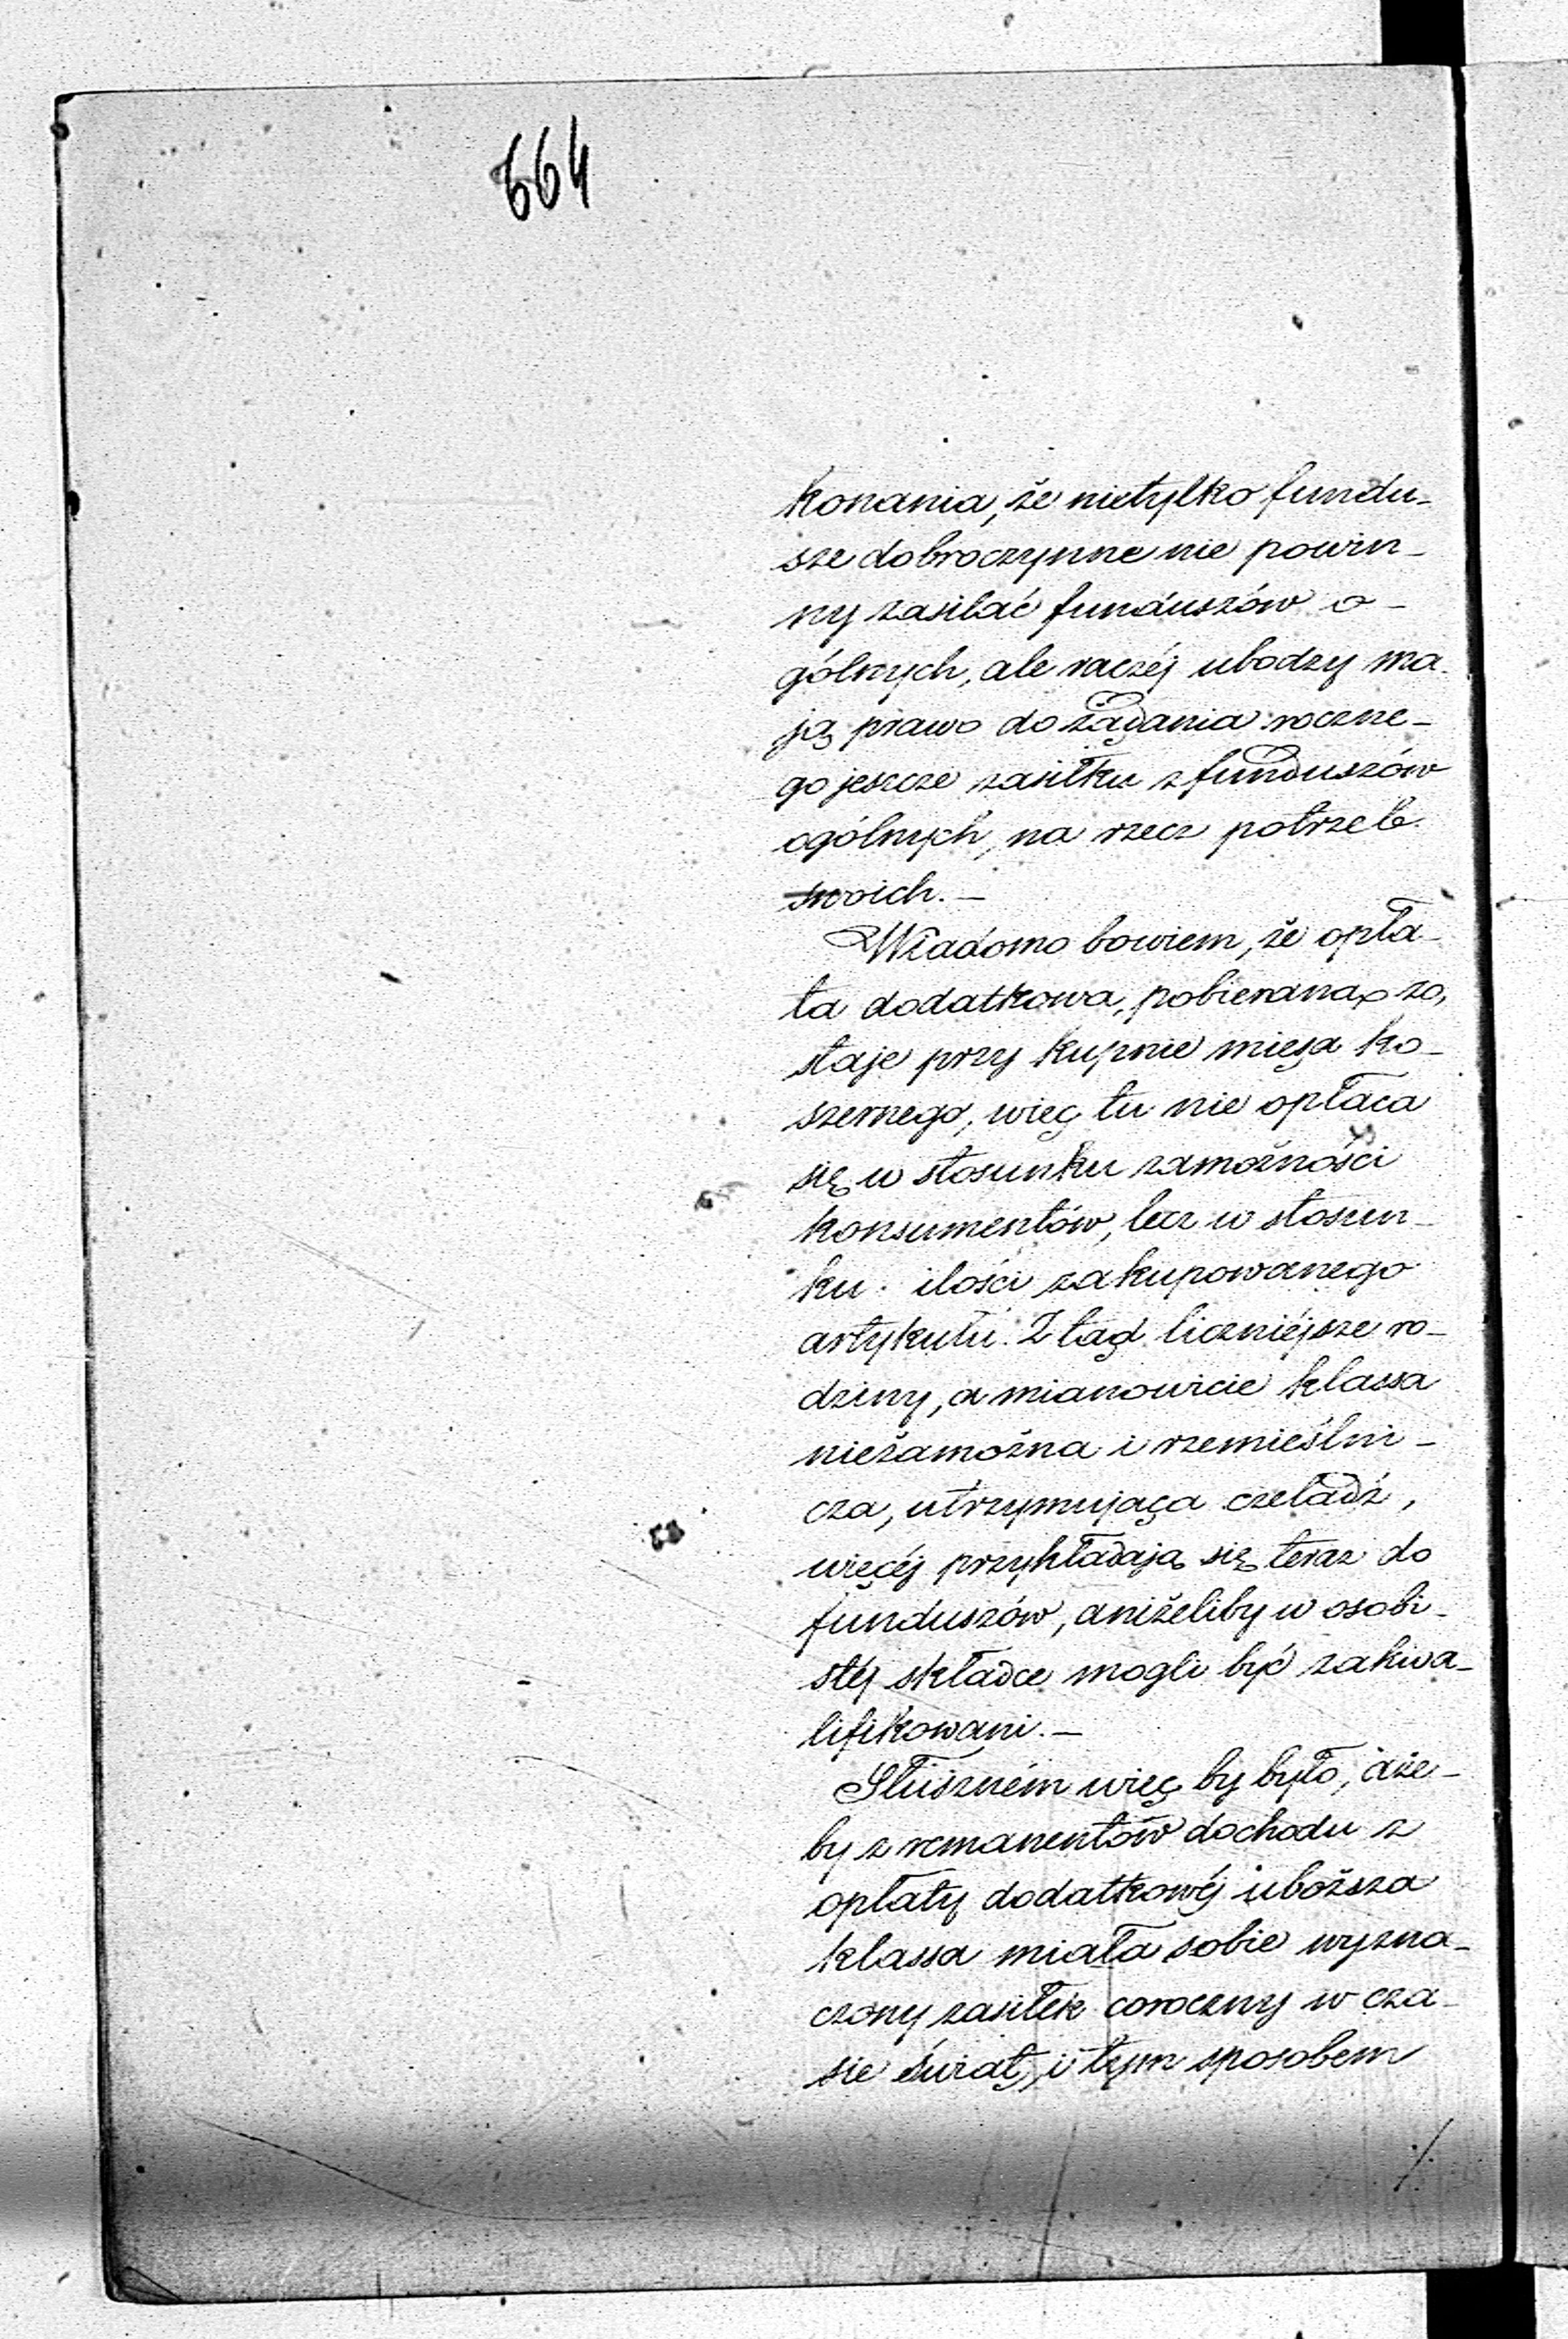 664
konania, że nietylko fundu-
sze dobroczynne nie powin-
ny zasilać funduszów o-
gólnych, ale raczéj ubodzy ma-
ją prawo do żądania roczne-
go jeszcze zasiłku z funduszów
ogólnych, na rzecz potrzeb
swoich.—
Wiadomo bowiem, że opła-
ta dodatkowa, pobierana zo-
staje przy kupnie mięsa ko-
szernego, więc tu nie opłaca
się w stosunku zamożności
konsumentów, lecz w stosun-
ku ilości zakupowanego
artykułu. Ztąd liczniéjsze ro-
dziny, a mianowicie klassa
niezamożna i rzemieślni-
cza, utrzymująca czeladź,
więcéj przykładają się teraz do
funduszów, aniżeliby w osobi-
stéj składce mogli być zakwa-
lifikowani.—
Słuszném więc by było, aże-
by z remanentów dochodu z
opłaty dodatkowéj uboższa
klassa miała sobie wyzna-
czony zasiłek coroczny w cza-
sie świąt, i tym sposobem